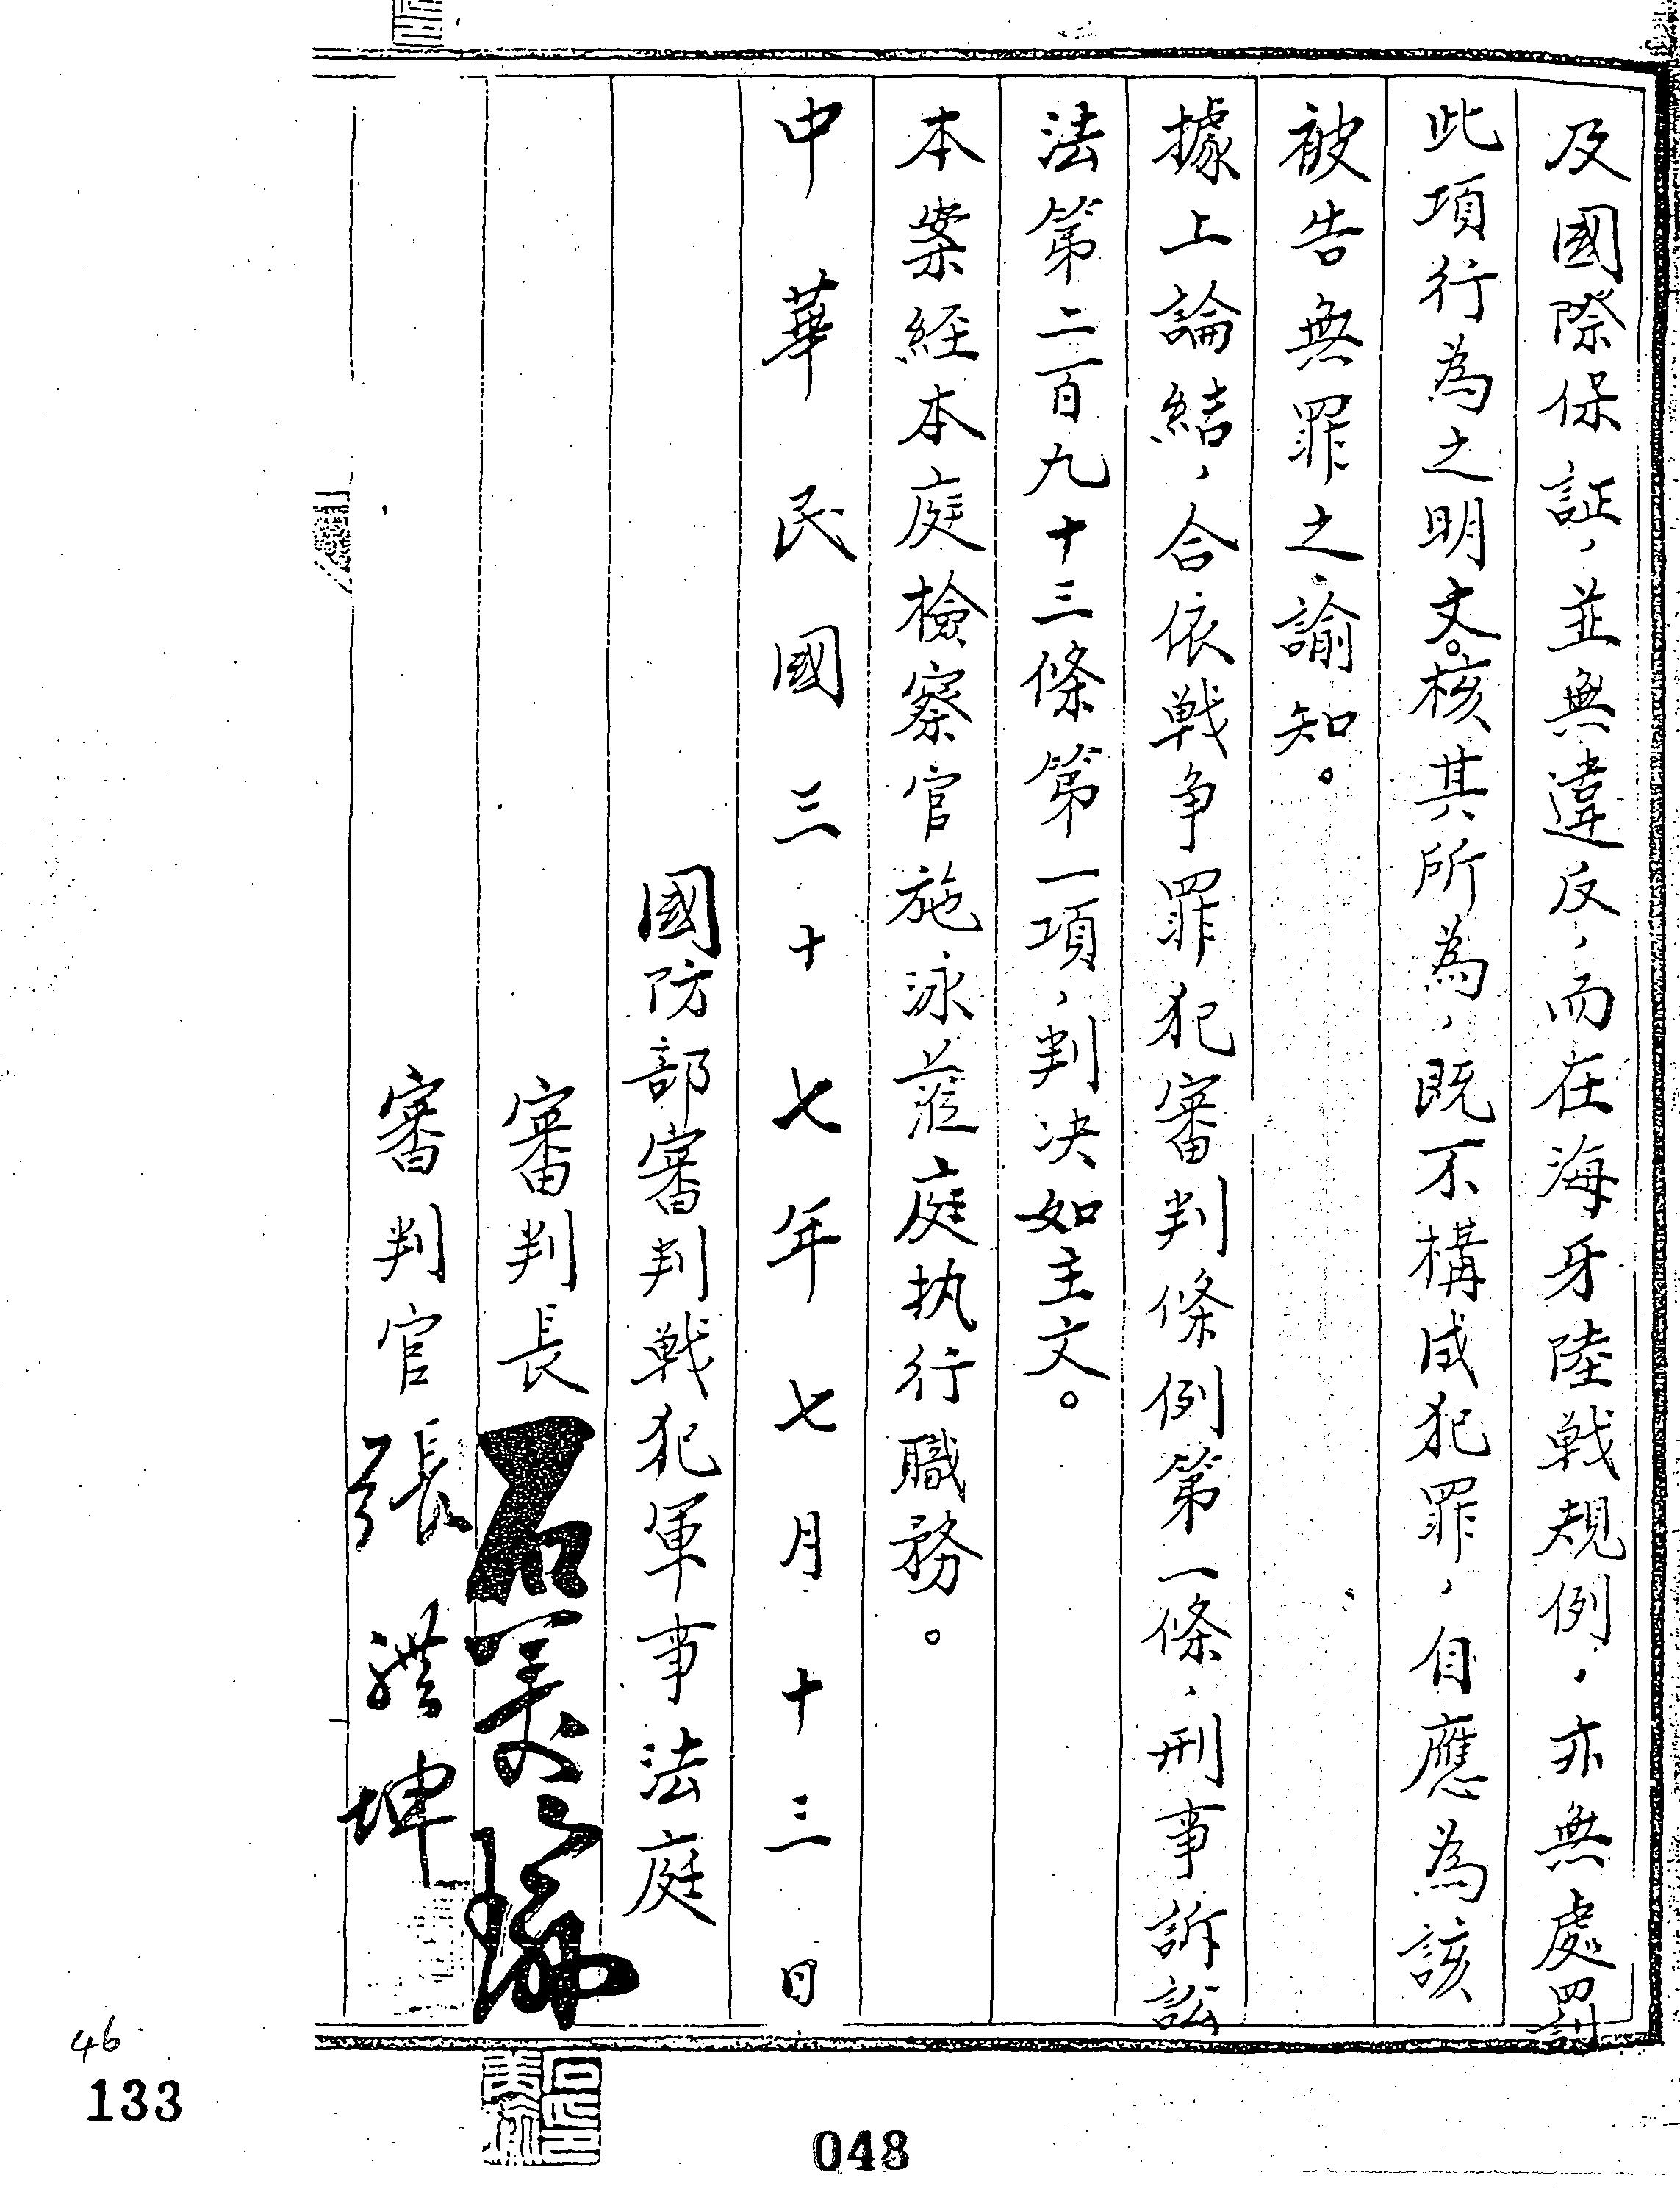 及國際保証，並無違反，而在海牙陸戦規例，亦無處罰
此項行為之明文。核其所為，既不構成犯罪，自應為該
被告無罪之諭知。
據上論結，合依戦争罪犯審判條例第一條，刑事訴訟
法第二百九十三條第一項，判決如主文。
本案経本庭檢察官施泳蒞庭执行職務。
中華民國三十七年七月十三日
國防部審判戦犯軍事法庭
審判長 石美瑜
審判官 張體坤
46
133
048